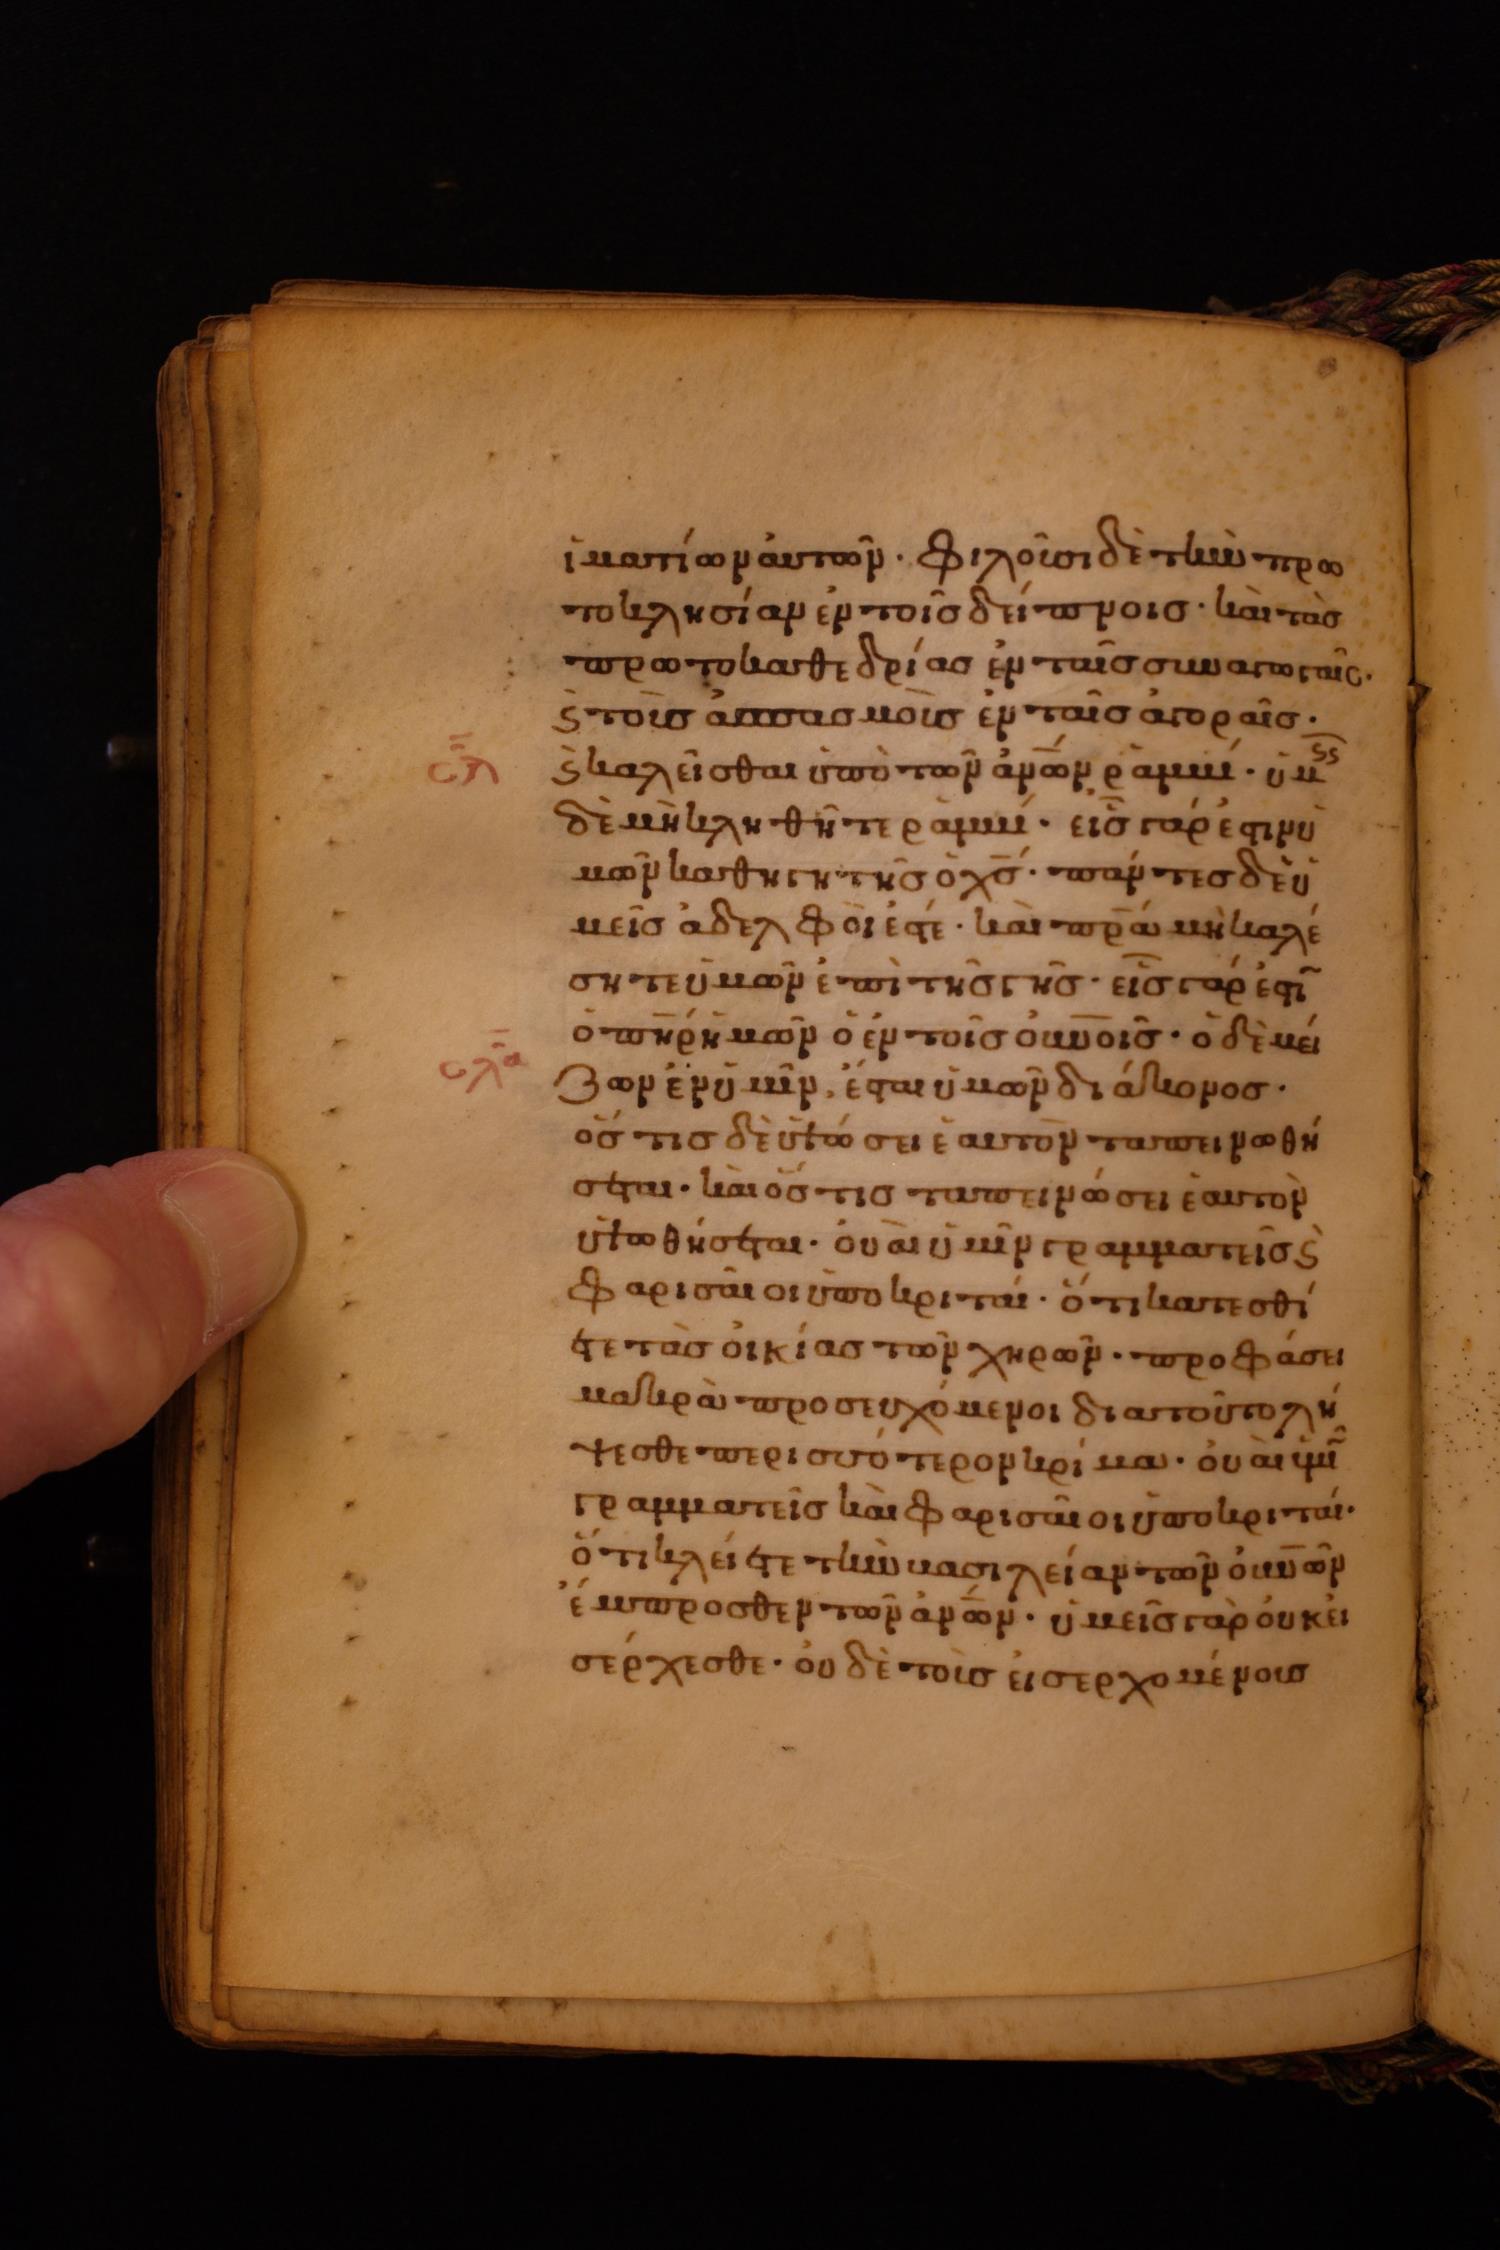 ἱματίων ἀυτῶν· φιλοῦσι δὲ τὴν πρω
τοκλησίαν ἐν τοῖς δείπνοις· καὶ τὰς
πρωτοκαθεδρίας ἐν ταῖς συναγωγαῖς·
ϗ τοὺς ἀσπασμοὺς ἐν ταῖς ἀγοραῖς·
σλ ϗ καλεῖσθαι ὑπὸ τῶν ἀν̅ω̅ν ῥαββί· ὑμεῖς
δὲ μὴ κληθῆτε ῥαββί· εἷς γάρ ἐστιν ὑ
μῶν καθηγητὴς ὁ χ̅ς̅· πάντες δὲ ὑ
μεῖς ἀδελφοί ἐστέ· καὶ π̅ρ̅α μὴ καλέ
σητε ὑμῶν ἐπὶ τῆς γῆς· εἷς γάρ ἐστῖ
ὁ π̅η̅ρ ὑμῶν ὁ ἐν τοῖς ὀυ̅ν̅οῖς· ὁ δὲ μεί
σλα ζων ἐν ὑμῖν, ἔσται ὑμῶν διάκονος·
ὅστις δὲ ὑψώσει ἑαυτὸν ταπεινωθή
σεται· καὶ ὅστις ταπεινώσει ἑαυτὸν
ὑψωθήσεται· ὀυὰι ὑμῖν γραμματεῖς ϗ
φαρισαῖοι ὑποκριταί· ὅτι κατεσθί
ετε τὰς οἰκίας τῶν χηρῶν· προφάσει
μακρὰ προσευχόμενοι διατοῦτο λή
ψεσθε περισσότερον κρίμα· ὀυὰι ὑμῖ
γραμματεῖς καὶ φαρισαῖοι ὑποκριταί·
ὅτι κλείετε τὴν βασιλείαν τῶν ὀυ̅ν̅ῶν
ἔμπροσθεν τῶν ἀν̅ω̅ν· ὑμεῖς γὰρ ὀυκ ἐι
σέρχεσθε· ὀυδὲ τοὺς ἐισερχομένους